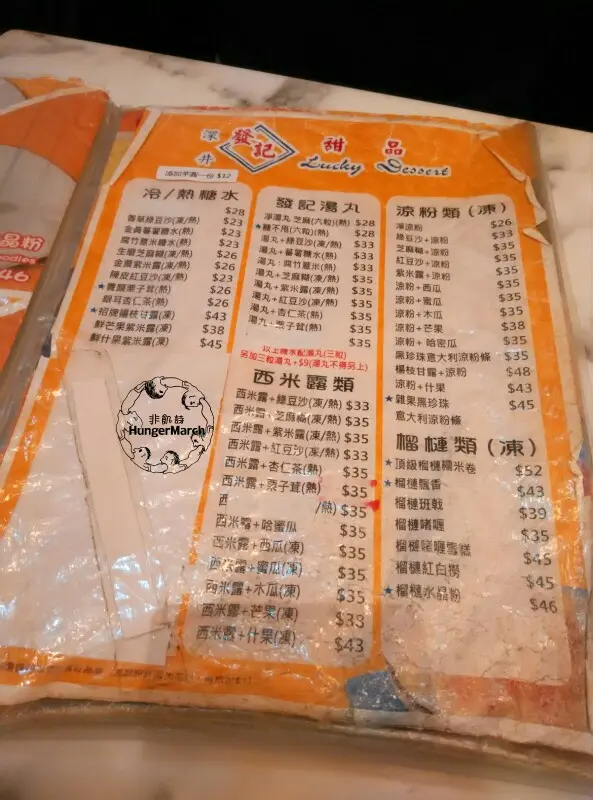 深井
發記
甜品
Lucky Dessert
添加芋圓一份 $12
冷/熱糖水
香草綠豆沙(凍/熱) $28
金黃蕃薯糖水(熱) $23
腐竹薏米糖水(熱) $23
生磨芝麻糊(凍/熱) $23
金露紫米露(凍/熱) $26
陳皮紅豆沙(凍/熱) $23
栗子茸(熱) $26
銀耳杏仁茶(熱) $26
★招牌楊枝甘露(凍) $43
鮮芒果紫米露(凍) $38
鮮什果紫米露(凍) $45
發記湯丸
淨湯丸 芝麻(六粒)(熱) $28
★糖不甩(六粒)(熱) $28
湯丸+綠豆沙(凍/熱) $33
湯丸+蕃薯糖水(熱) $33
湯丸+腐竹薏米(熱) $33
湯丸+芝麻糊(凍/熱) $35
湯丸+紫米露(凍/熱) $35
湯丸+紅豆沙(凍/熱) $35
湯丸+杏仁茶(熱) $35
湯丸+栗子茸(熱) $35
以上糖水配湯丸(三粒)
另加三粒湯丸+$9(湯丸不得另上)
西米露類
西米露+綠豆沙(凍/熱) $33
西米露+芝麻糊(凍/熱) $35
西米露+紫米露(凍/熱) $35
西米露+紅豆沙(凍/熱) $33
西米露+杏仁茶(熱) $35
西米露+栗子茸(熱) $35
西 /熱) $35
西米露+哈蜜瓜 $35
西米露+西瓜(凍) $35
西米露+蜜瓜(凍) $35
西米露+木瓜(凍) $35
西米露+芒果(凍) $33
西米露+什果(凍) $43
涼粉類(凍)
淨涼粉 $26
綠豆沙+涼粉 $33
芝麻糊+涼粉 $35
紅豆沙+涼粉 $35
紫米露+涼粉 $35
涼粉+西瓜 $35
涼粉+蜜瓜 $35
涼粉+木瓜 $35
涼粉+芒果 $38
涼粉+哈蜜瓜 $35
黑珍珠意大利涼粉條 $35
楊枝甘露+涼粉 $48
涼粉+什果 $43
★雜果黑珍珠 $45
意大利涼粉條
榴槤類(凍)
★頂級榴槤糯米卷 $52
★榴槤飄香 $43
榴槤班戟 $39
榴槤啫喱 $35
榴槤啫喱雪糕 $45
榴槤紅白撈 $45
★榴槤水晶粉 $46
晶粉
oodles
46
非飢詩
HungerMarch